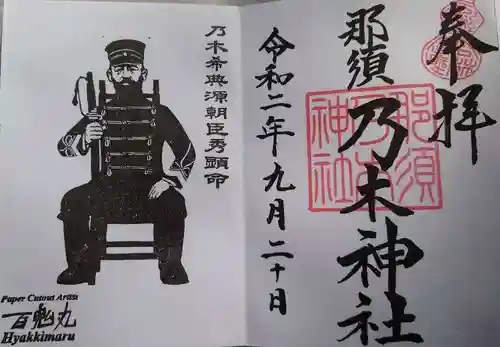 奉拝
那須乃木神社
那須
乃木
神社
令和二年九月二十日
乃木希典源朝臣秀顕命
Paper Cutout Artist
百鬼丸
Hyakkimaru